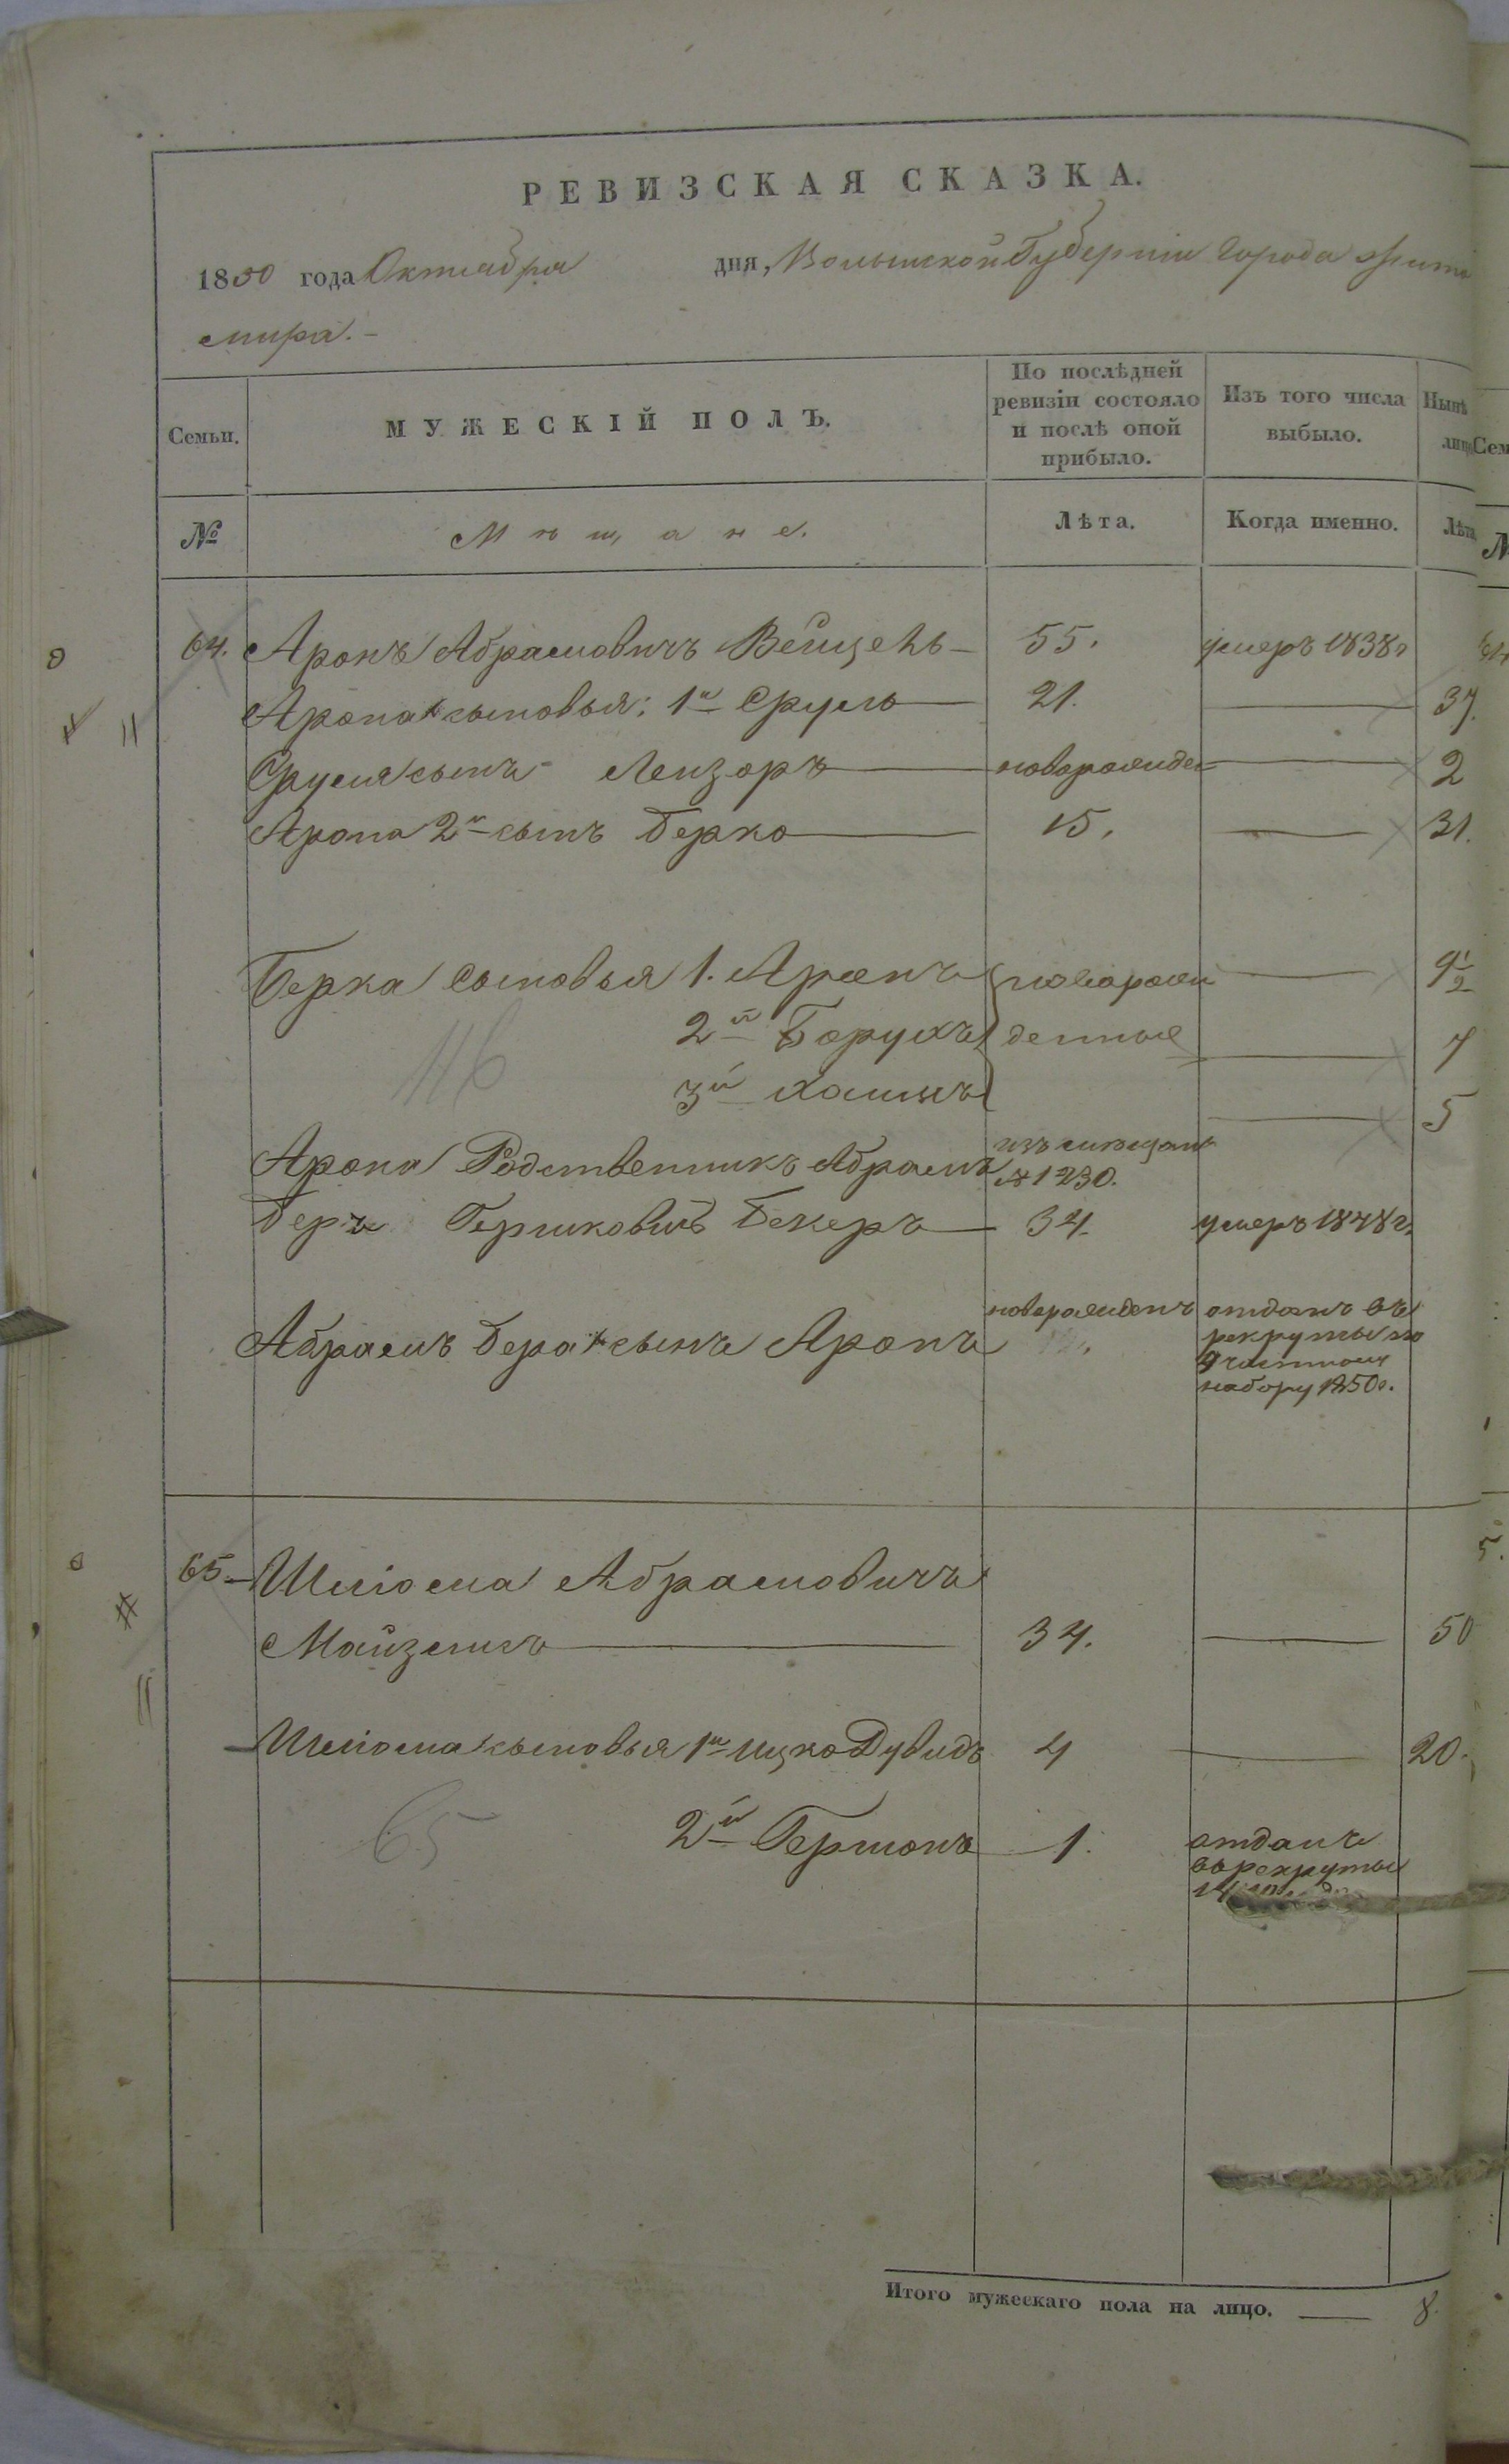 РЕВИЗСКАЯ СКАЗКА.
1850 года Октября дня, Волынской Губерніи Города Жито
мира. –
Семьи. МУЖЕСКІЙ ПОЛЪ. По послѣдней ревизіи состояло и послѣ оной прибыло. Изъ того числа выбыло. Нынѣ
№ Мѣщане. Лѣта. Когда именно. Лѣта
64. Аронъ Абрамовичъ Вейцель – 55. умеръ 1838 г
Арона сыновья: 1й Сруль 21. 37.
Сруля сынъ Лейзоръ новорожден 2
Арона 2й сынъ Берко 15. 31.
Берка сыновья 1. Аронъ новорож 9½
2й Борухъ денные 7
3й Хаимъ 5
116
Арона Родственникъ Абрамъ изъ мѣщанъ № 1230.
Беръ Гершковичъ Бекеръ 34. умеръ 1848 г.
Абрамъ Бера сынъ Аронъ новорожденъ отданъ въ
рекруты по
9 частному
набору 1850 г.
65. Шліома Абрамовичъ
Майзлисъ 34. 50
Шліома сыновья 1й Ицко Дувидъ 4 20.
65 2й Гершонъ 1. отданъ
въ рекруты
Итого мужескаго пола на лицо. 8.